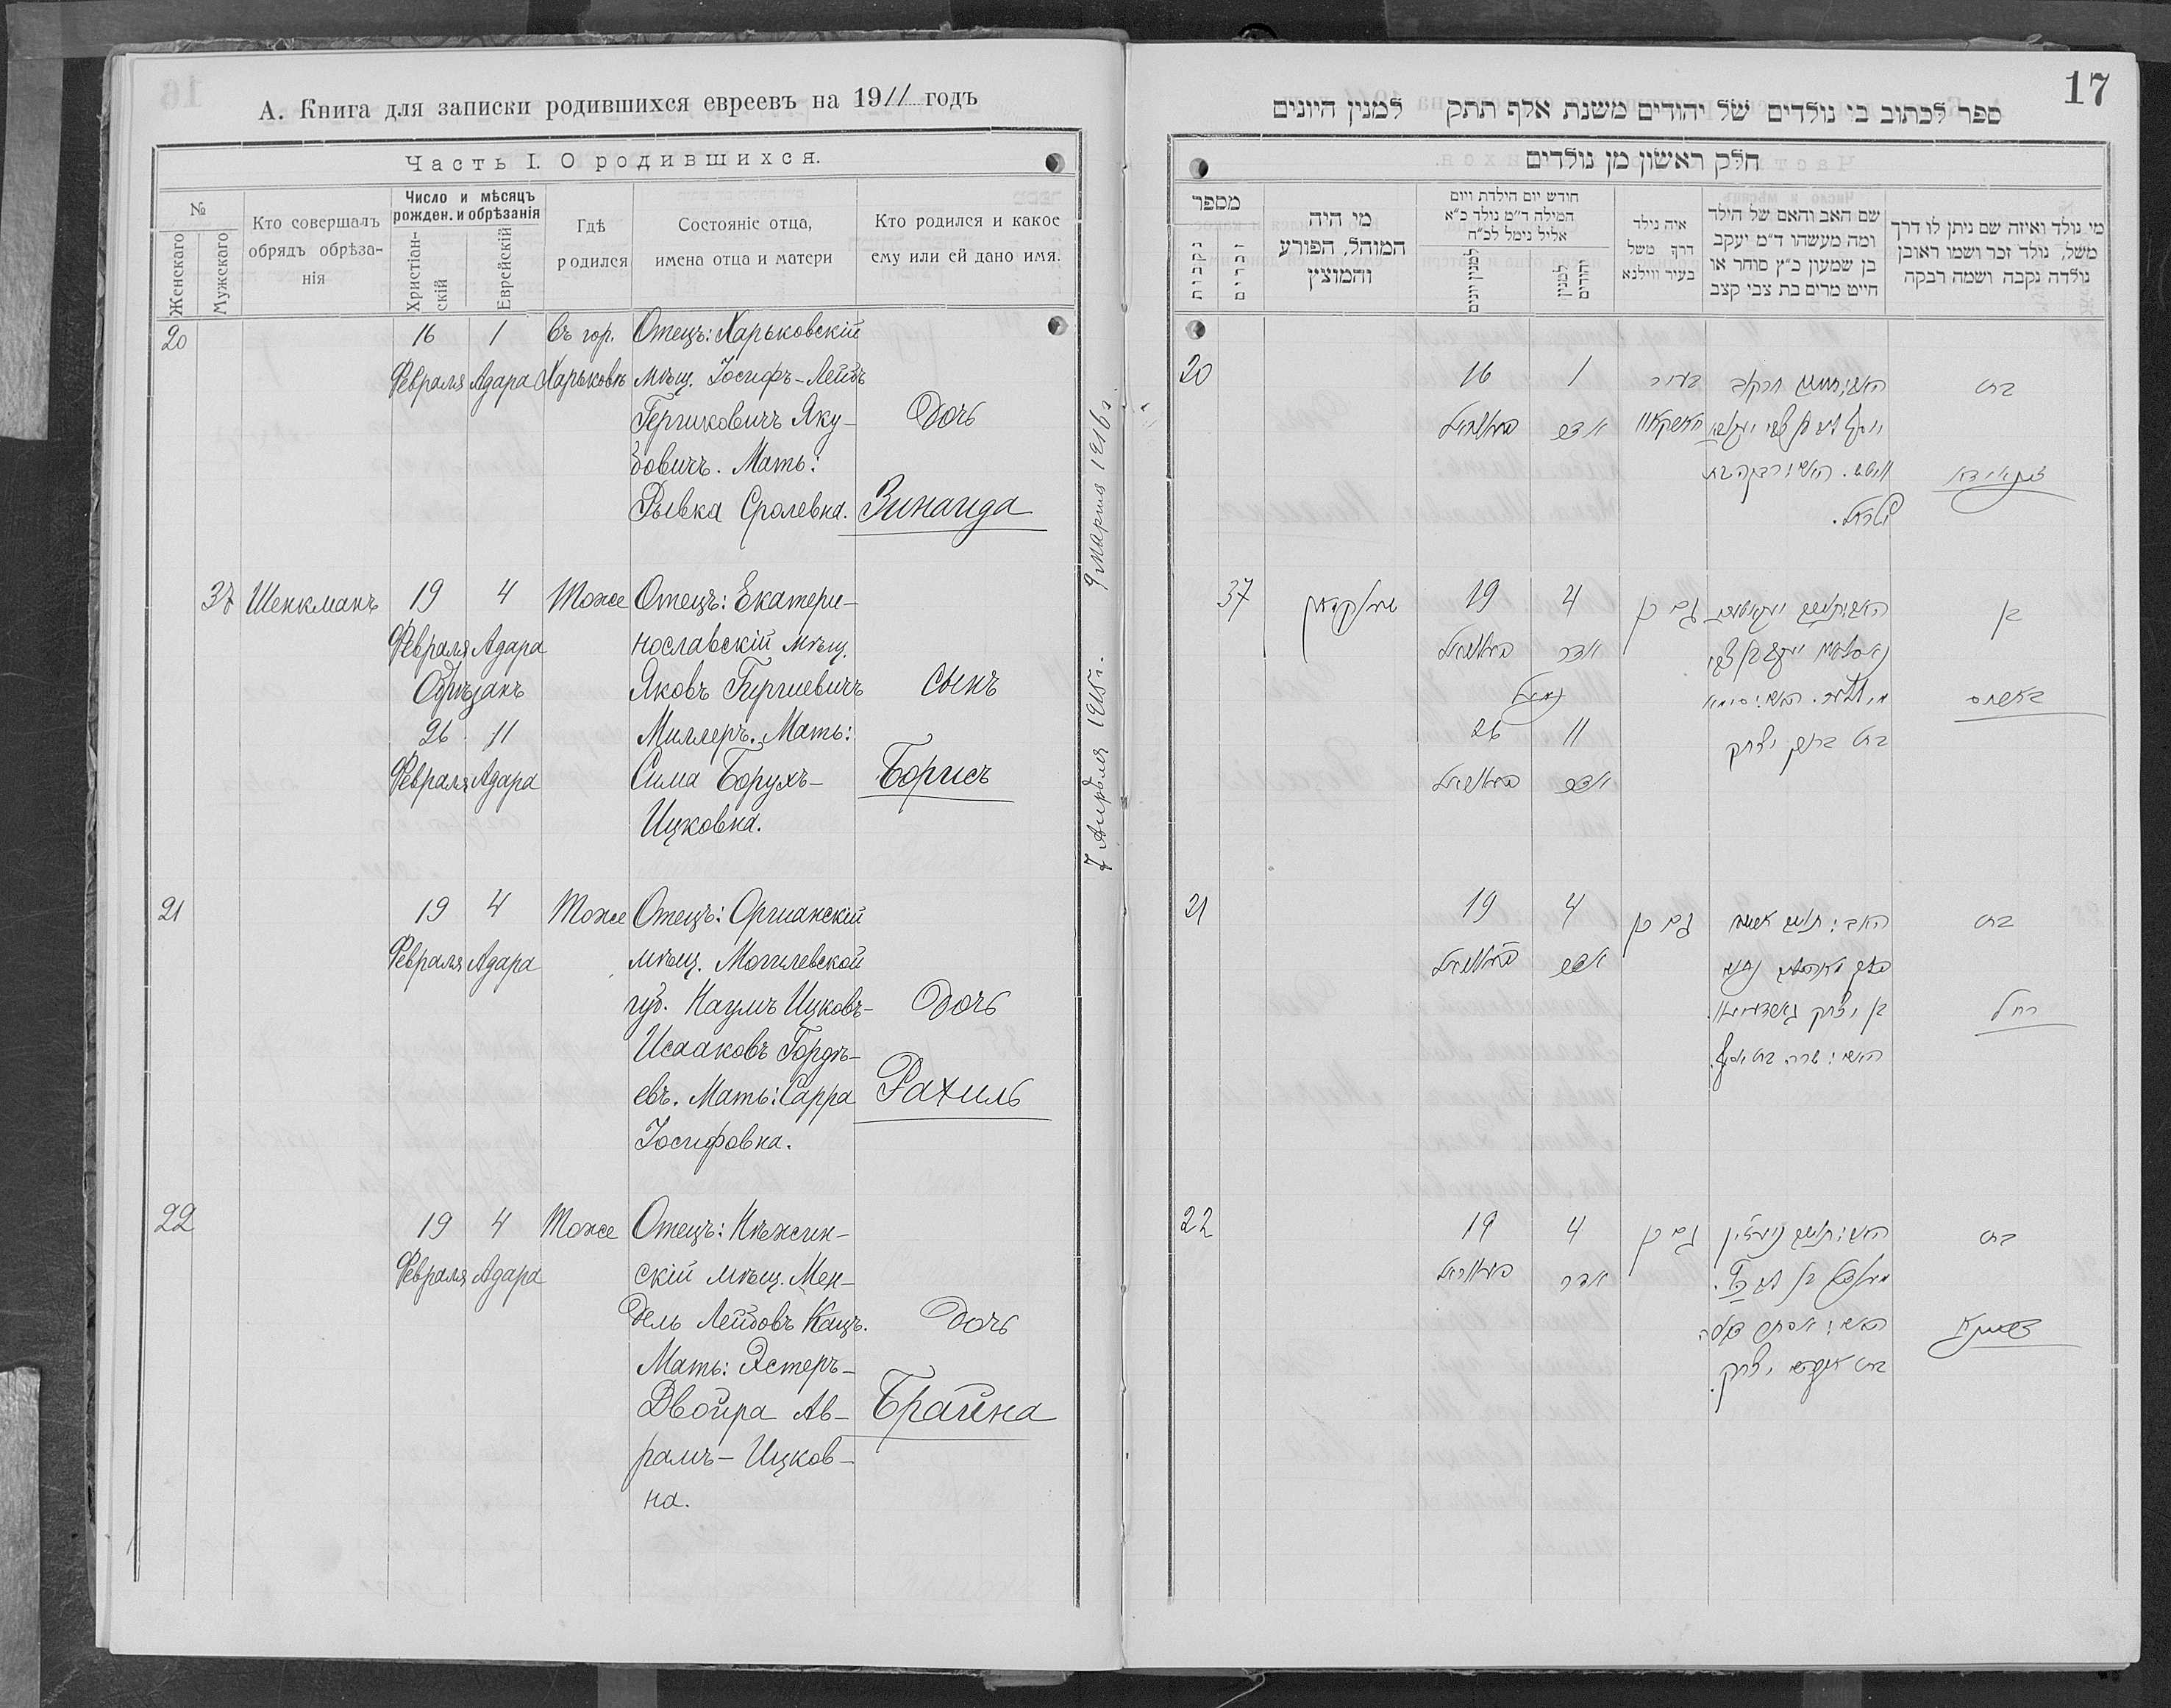 А. Книга для записки родившихся евреевъ на 1911 годъ
Часть I. О родившихся.
№
Женскаго
Мужскаго
Кто совершалъ
обрядъ обрѣза-
нія
Число и мѣсяцъ
рожден. и обрѣзанія
Христіан-
скій
Еврейскій
Гдѣ
родился
Состояніе отца,
имена отца и матери
Кто родился и какое
ему или ей дано имя.
20
16
Февраля
1
Адара
Въ гор.
Харьковѣ
Отецъ: Харьковскій
мѣщ. Іосифъ-Лейбъ
Гершковичъ Яку-
бовичъ. Мать:
Рывка Сролевна.
Дочь
Зинаида
37
Шенкманъ
19
Февраля
4
Адара
Обрѣзанъ
26
Февраля
11
Адара
Тоже
Отецъ: Екатери-
нославскій мѣщ.
Яковъ Гиршевичъ
Миллеръ. Мать:
Сима Борухъ-
Ицковна.
Сынъ
Борисъ
21
19
Февраля
4
Адара
Тоже
Отецъ: Оршанскій
мѣщ. Могилевской
губ. Наумъ Ицковъ-
Исааковъ Гордѣ-
евъ. Мать: Сарра
Іосифовна.
Дочь
Рахиль
22
19
Февраля
4
Адара
Тоже
Отецъ: Нѣжин-
скій мѣщ. Мен-
дель Лейбовъ Кацъ.
Мать: Эстеръ-
Двойра Ав-
рамъ-Ицков-
на.
Дочь
Брайна
7 Апрѣля 1915 г.
9 марта 1916 г.
17
ספר לכתוב בי נולדים של יהודים משנת אלף תתק למנין היונים
חלק ראשון מן נולדים
מספר
נקבות
זכרים
מי היה
המוהל, הפורע
והמוצץ
חודש יום הילדת ויום
המילה ד״מ נולד כ״א
אליל נימל לכ״ח
למנין יונים
למנין
יהודים
איה נולד
דרך משל
בעיר ווילנא
שם האב והאם של הילד
ומה מעשהו ד״מ יעקב
בן שמעון כ״ץ סוחר או
חייט מרים בת צבי קצב
מי נולד ואיזה שם ניתן לו דרך
משל, נולד זכר ושמו ראובן
נולדה נקבה ושמה רבקה
20
16
פעברואר
1
אדר
בעיר
חארקאוו
ישראל.
בת
זינאידא
37
שענקמאן
19
פעברואר
נימול
26
פעברואר
4
אדר
11
אדר
גם כן
בת ברוך יצחק
בן
באריס
21
19
פעברואר
4
אדר
גם כן
האם: שרה בת יוסף.
בת
רחל
22
19
פעברואר
4
אדר
גם כן
בת אברהם יצחק.
בת
בריינא